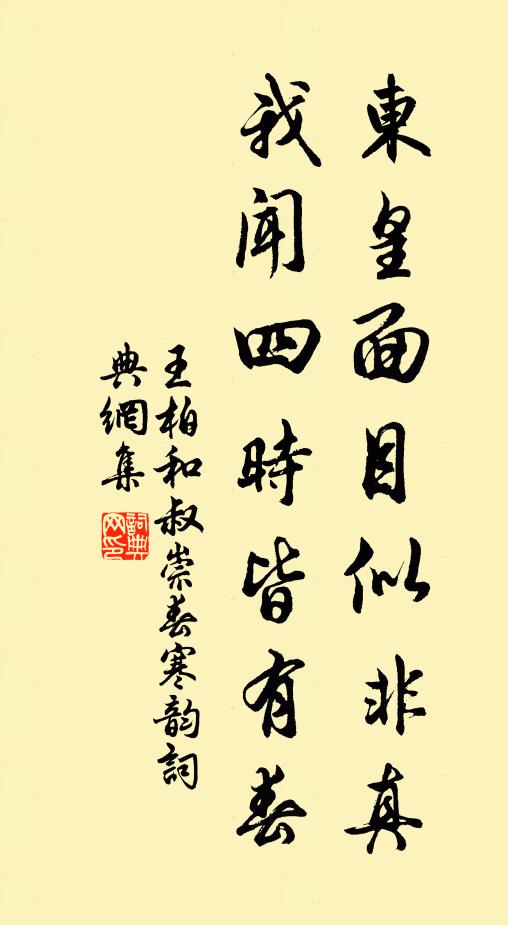 東皇面目似非真
我聞四時皆有春
王柏和叔崇春寒韵詞
典網集
詞典網印